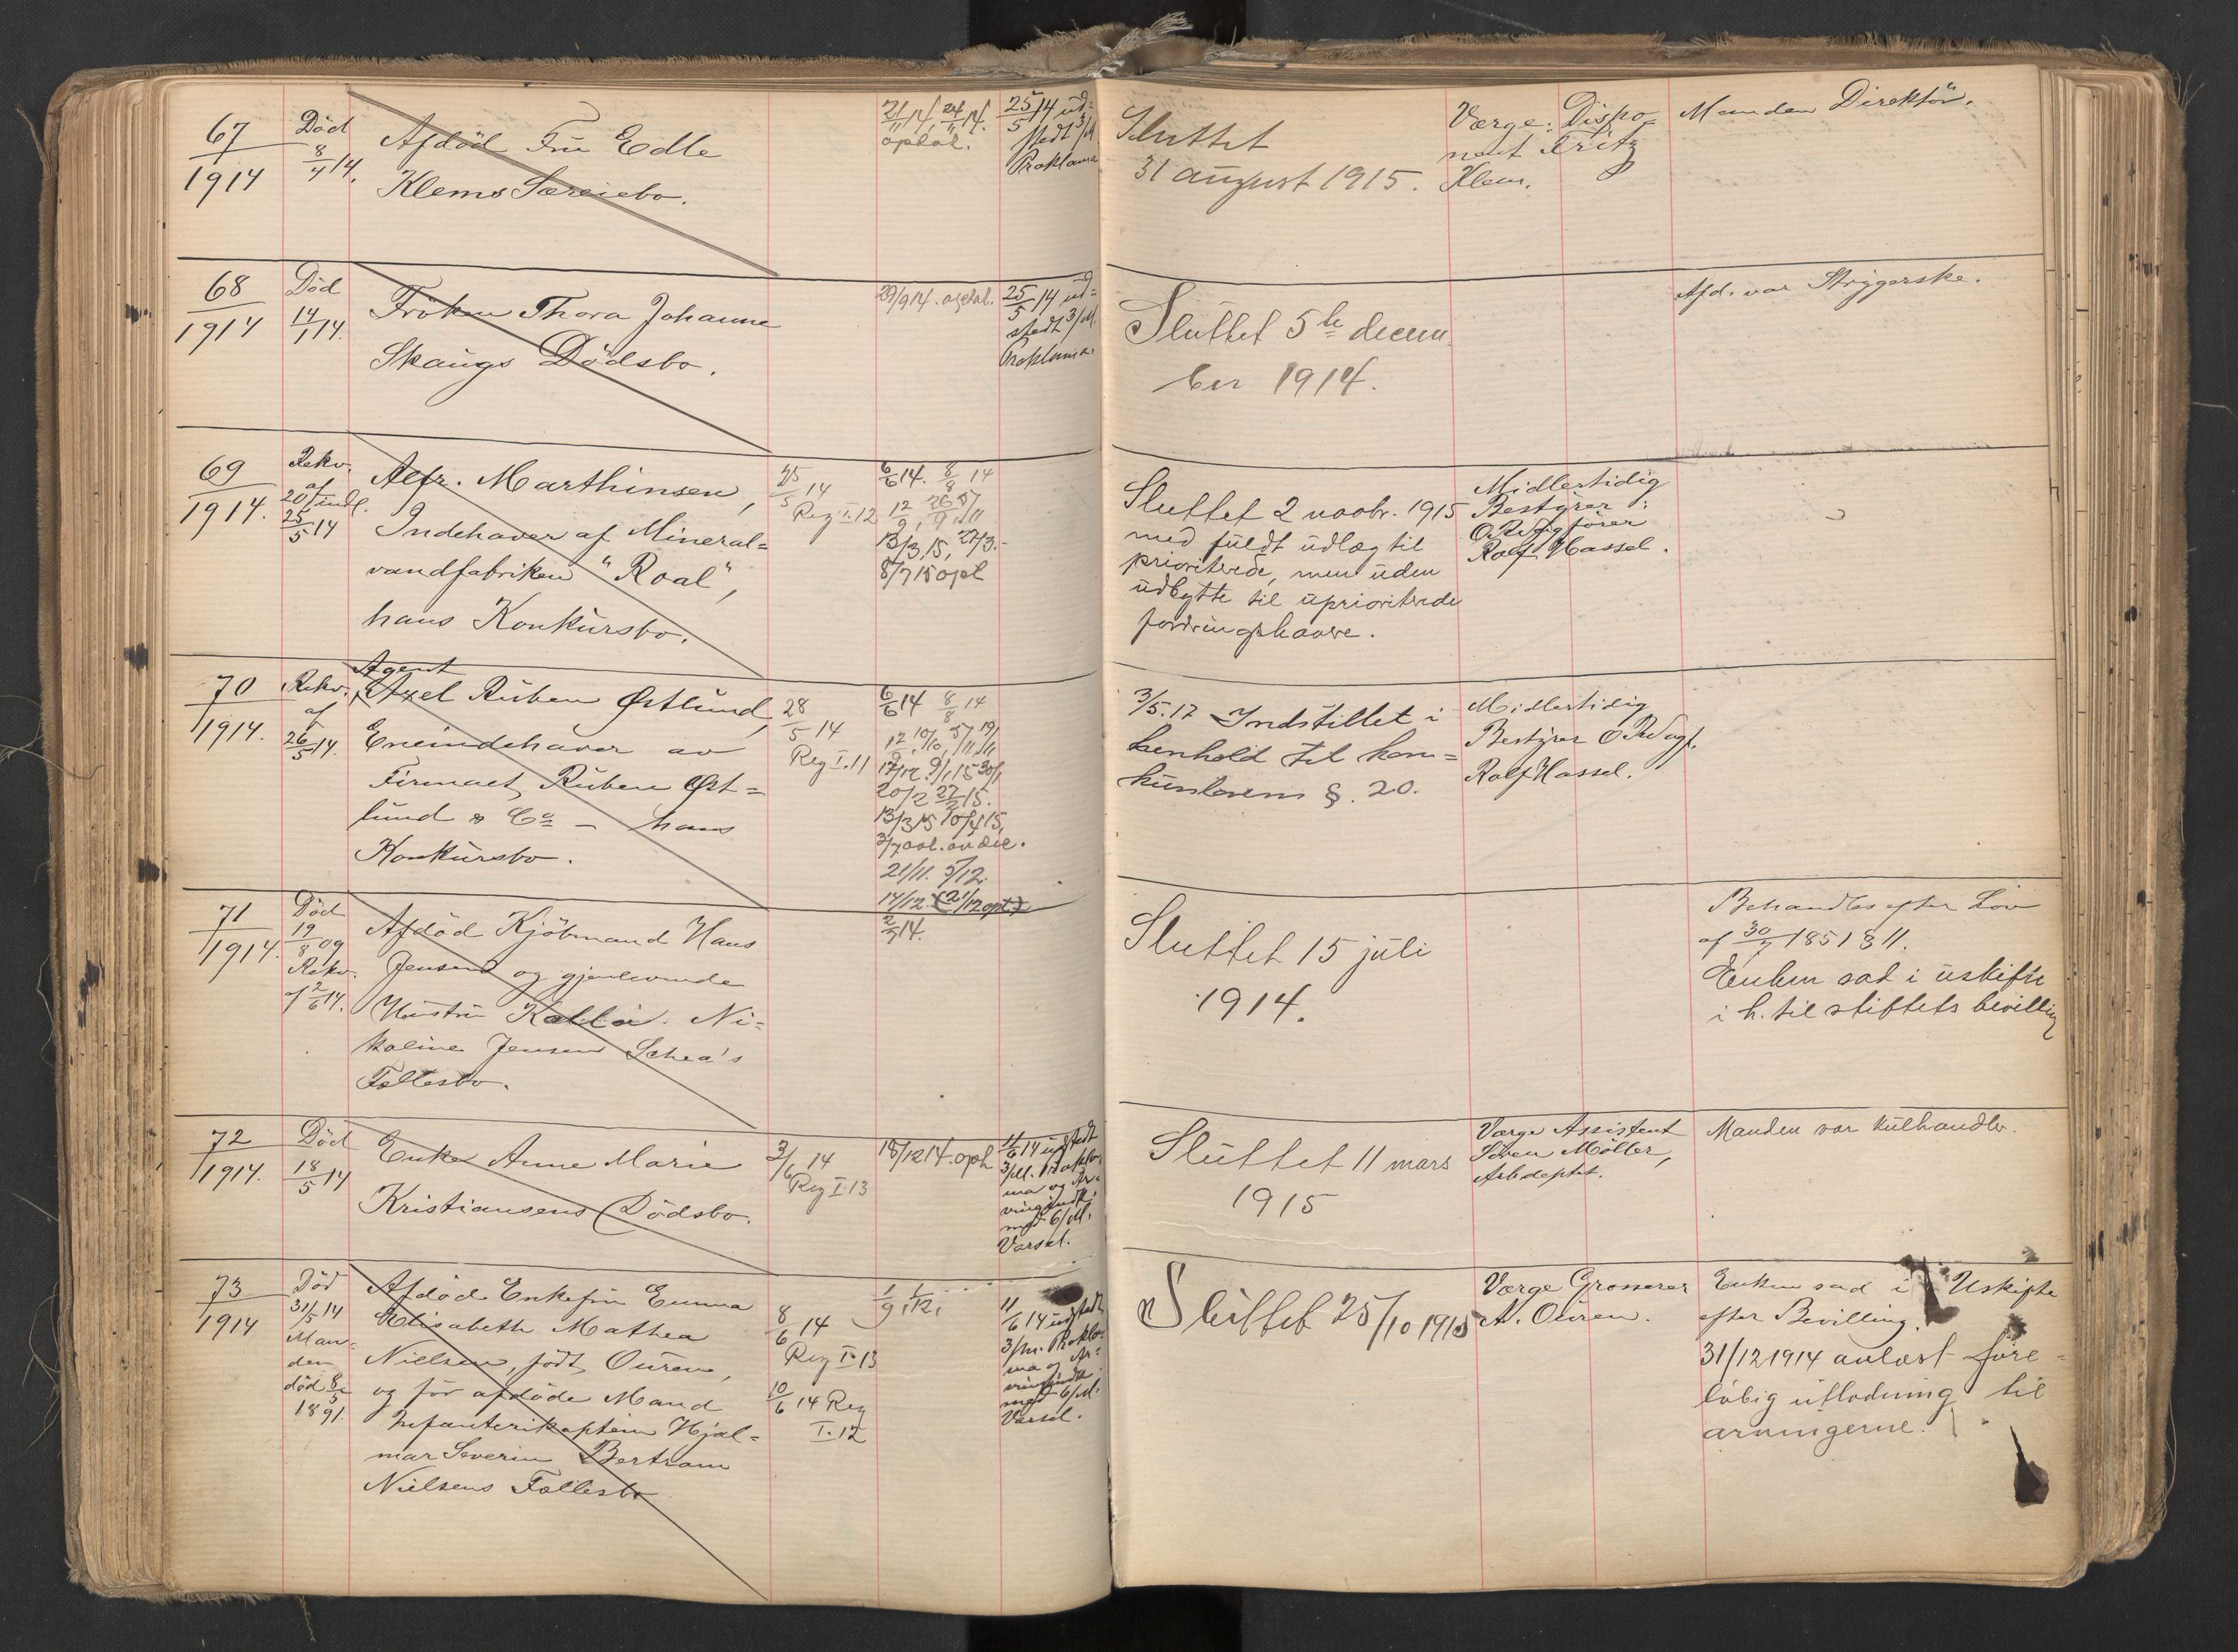 67
1914
Død
8/4 14.
Afdöd Fru Edle
Klems Særeiebo.
21/11 14, 24/11 14.
optal.
25/5 14 ud-
stedt 3/M
Proklama
Sluttet
31 august 1915.
Værge: Dispo-
nent Fritz
Klem.
Manden Direktör.
68
1914
Död
14/1 14.
Fröken Thora Johanne
Skaugs Dödsbo.
29/9 14. optal.
25/5 14 ud-
stedt 3/M.
Proklama.
Sluttet 5te decem
ber 1914.
Afd. var Strygerske.
69
1914.
Rekv.
af
20/5 indl.
25/5 14
Alfr. Marthinsen,
Indehaver af Mineral-
vandfabriken "Roal",
hans Konkursbo.
25/5 14
Reg I.12
6/6 14. 8/8 14
12/9, 26/9, 5/11
13/3 15, 27/3.
8/7 15 opl
Sluttet 2 novbr. 1915
med fuldt udlæg til
prioriterede, men uden
udbytte til uprioriterede
fordringshavere.
Midlertidig
Bestyrer:
O.R.Sagförer
Rolf Hassel.
70
1914.
Rekv.
af
26/5 14.
Agent
Axel Ruben Østlund,
Eneindehaver av
Firmaet Ruben Øst-
lund & Co – hans
Konkursbo.
28/5 14
Reg I.11
6/6 14 8/8 14
12/9, 10/10, 5/11, 19/11
17/12 9/1 15 30/1
20/2 27/2 15.
13/3 15 10/4 15,
21/11. 5/12.
14/12. (21/12 opt.)
3/5. 17 Indstillet i
henhold til kon-
kurslovens §. 20.
Midlertidig
Bestyrer O.R.Sagf.
Rolf Hassel.
71
1914.
Död
19/8 09
Rekv.
af 2/6 14.
Afdöd Kjöbmand Hans
Jensen og gjenlevende
Hustru Ni-
koline Jensen Schea's
Fællesbo.
2/7 14.
Sluttet 15 juli
1914.
Behandles efter Lov
af 30/7 1851 § 11.
Enken sad i uskifte
i h. til stiftets bevilling
72
1914.
Död
18/5 14
Enke Anne Marie
Kristiansens Dödsbo.
3/6 14
Reg I.13
18/12 14. oph
11/6 14 udstedt
3/M. Prokla-
ma og Ar-
vingindk.
med 6/M.
Varsel.
Sluttet 11 mars
1915
Værge Assistent
Sören Möller,
Arb.deptet.
Manden var kulhandler.
73
1914
Död
31/5 14
Man-
den
död 8/5
1891.
Afdöd Enkefru Emma
Elisabeth Mathea
Nielsen, födt Ouren,
og för afdöde Mand
Infanterikaptein Hjal-
mar Severin Bertram
Nielsens Fællesbo.
8/6 14
Reg I.13
10/6 14 Reg
I.12
1/9, 1/12,
11/6 14 udstedt
3/m. Prokla-
ma og Ar-
vingindk.
med 6/M.
Varsel.
Sluttet 25/10 1915
Værge Grosserer
A. Ouren.
Enken sad i Uskifte
efter Bevilling.
31/12 1914 avlæst fore-
löbig utlodning til
arvingerne.